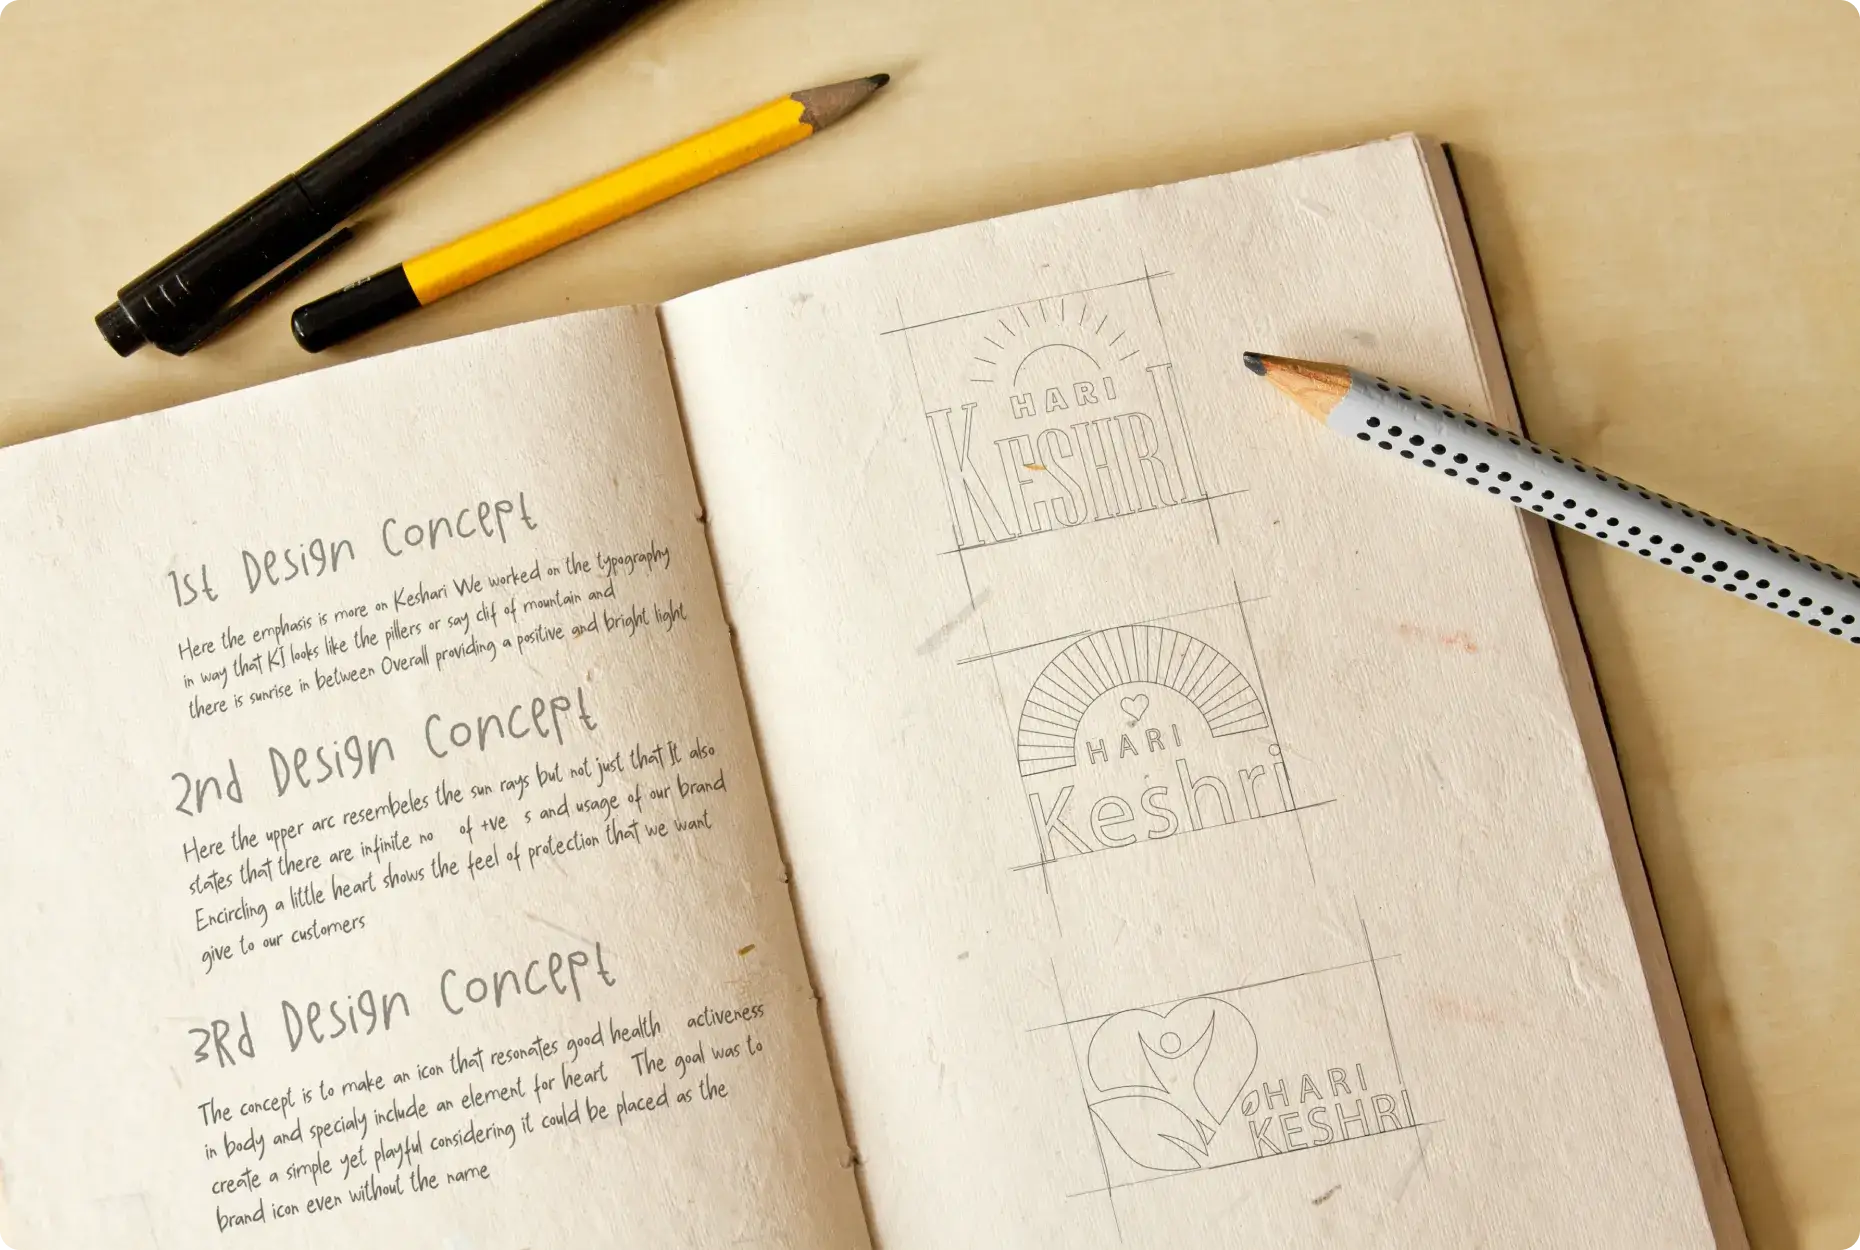 1st Design Concept
Here the emphasis is more on Keshari We worked on the typography
in way that KI looks like the pillers or say clif of mountain and
there is sunrise in between Overall providing a positive and bright light
2nd Design Concept
Here the upper arc resembeles the sun rays but not just that It also
states that there are infinite no of +ve s and usage of our brand
Encircling a little heart shows the feel of protection that we want
give to our customers
3Rd Design Concept
The concept is to make an icon that resonates good health activeness
in body and specialy include an element for heart The goal was to
create a simple yet playful considering it could be placed as the
brand icon even without the name
HARI
KESHRI
HARI
Keshri
HARI
KESHRI